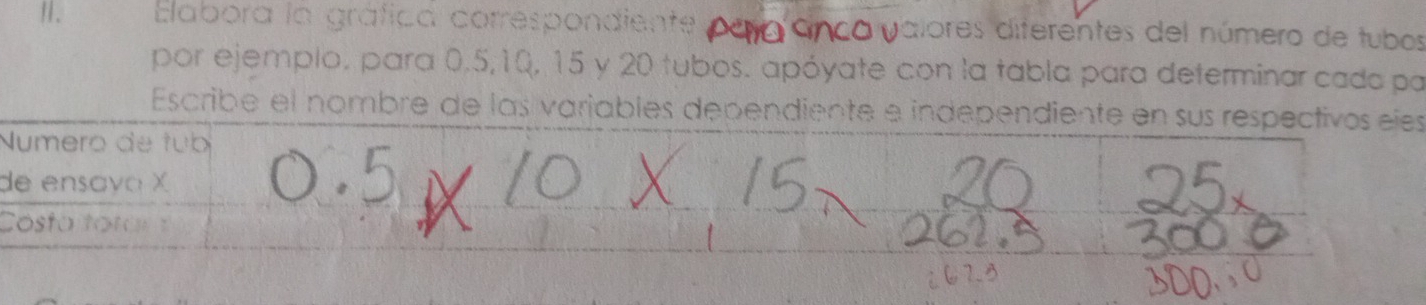 II. Elabora la gráfica correspondiente para cinco valores diferentes del número de tubos
por ejemplo, para 0,5,10, 15 y 20 tubos, apóyate con la tabla para determinar cada pa
Escribe el nombre de las variables dependiente e independiente en sus respectivos ejes
Numero de tub
de ensayo X 0.5 x 10 x 15 x 20 25 x
Costo total 262.5 300 0
262.5 300.0